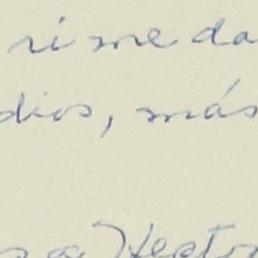 si me da
dios, más
a Hector